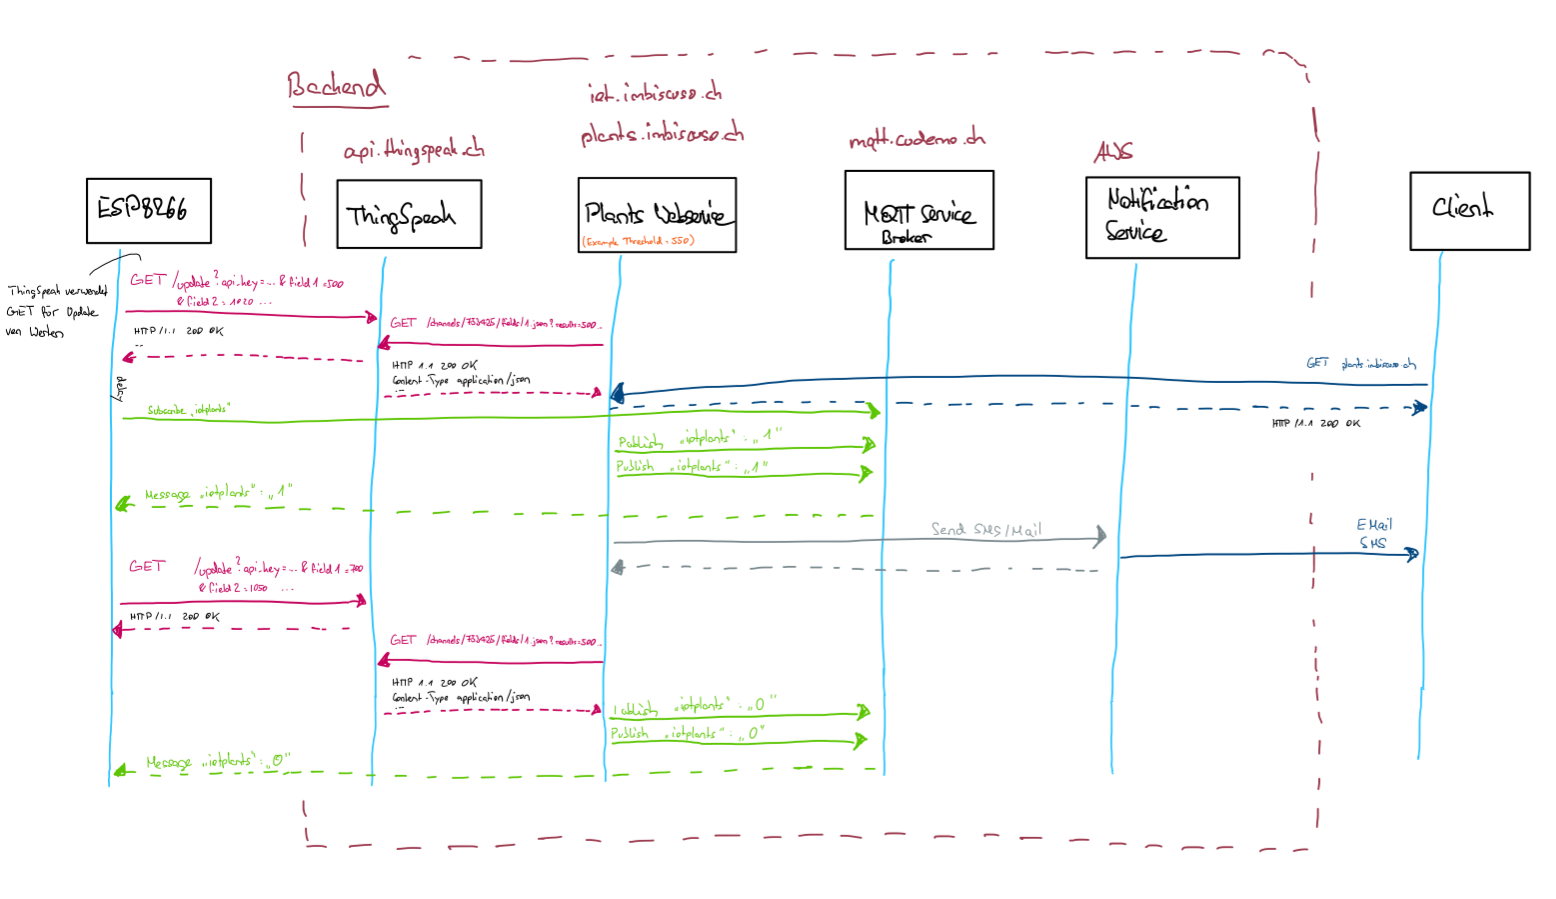 Backend
iot.imbiscuso.ch
plants.imbiscuso.ch
api.thingspeak.ch
mqtt.codemo.ch
AWS
ESP8266
ThingSpeak
Plants Webservice
(Example Threshold = 550)
MQTT Service
Broker
Notification
Service
Client
ThingSpeak verwendet
GET für Update
von Werten
GET /update?api_key=... & field1=500
& field2=1020 ...
HTTP/1.1 200 OK
...
GET /channels/733425/fields/1.json?results=500...
HTTP 1.1 200 OK
Content-Type application/json
...
GET plants.imbiscuso.ch
HTTP/1.1 200 OK
delay
Subscribe „iotplants"
Publish „iotplants" : „1"
Publish „iotplants" : „1"
Message „iotplants" : „1"
Send SMS/Mail
EMail
SMS
GET /update?api_key=... & field1=700
& field2=1050 ...
HTTP/1.1 200 OK
GET /channels/733425/fields/1.json?results=500...
HTTP 1.1 200 OK
Content-Type application/json
...
Publish „iotplants" : „0"
Publish „iotplants" : „0"
Message „iotplants" : „0"